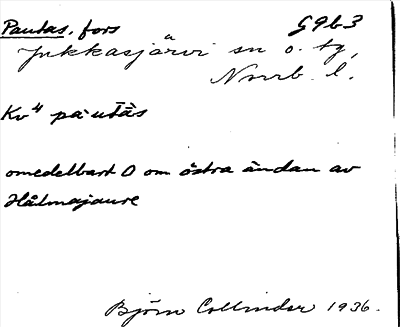 Pautas, fors G9b3
Jukkasjärvi sn o. tg,
Norrb. l.
Kv⁴ pa·utās
omedelbart O om östra ändan av
Hålmajaure
Björn Collinder 1936.